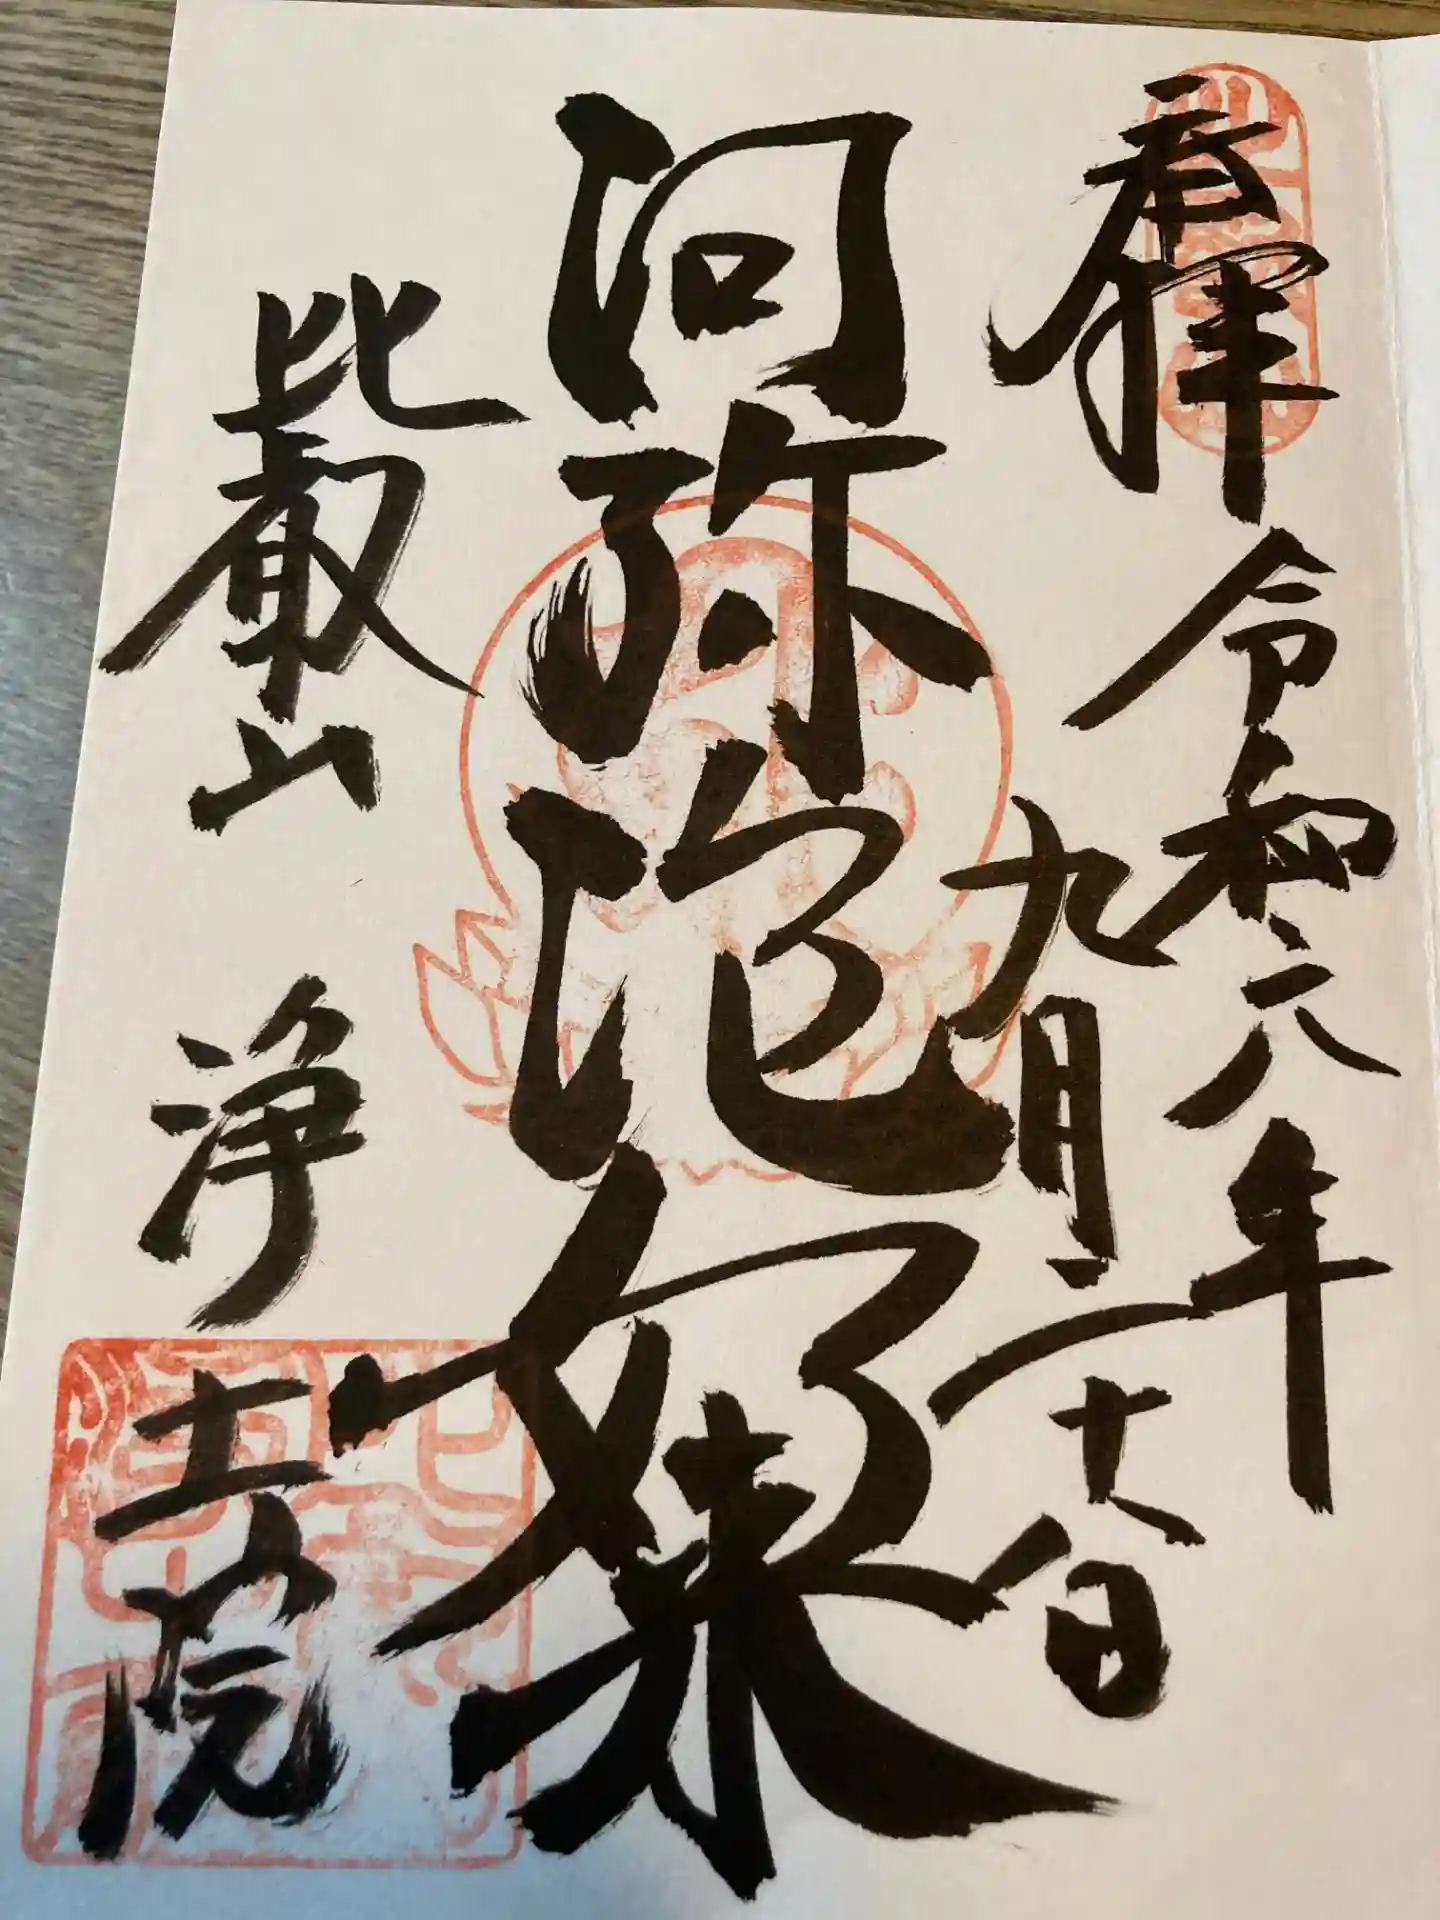 奉拝
令和六年
九月二十八日
阿弥陀如来
比叡山 浄土院